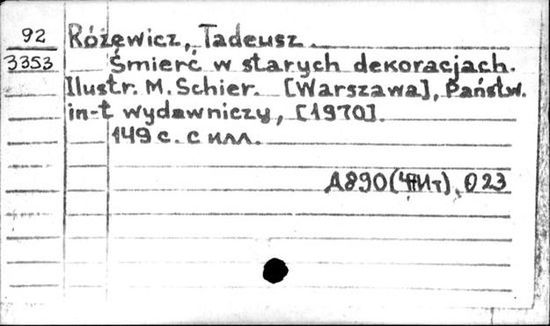 92
3353
Różewicz, Tadeusz.
Śmierć w starych dekoracjach.
Ilustr. M. Schier. [Warszawa], Państw.
in-t wydawniczy, [1970].
149 с. с илл.
А890(4Пит), 023